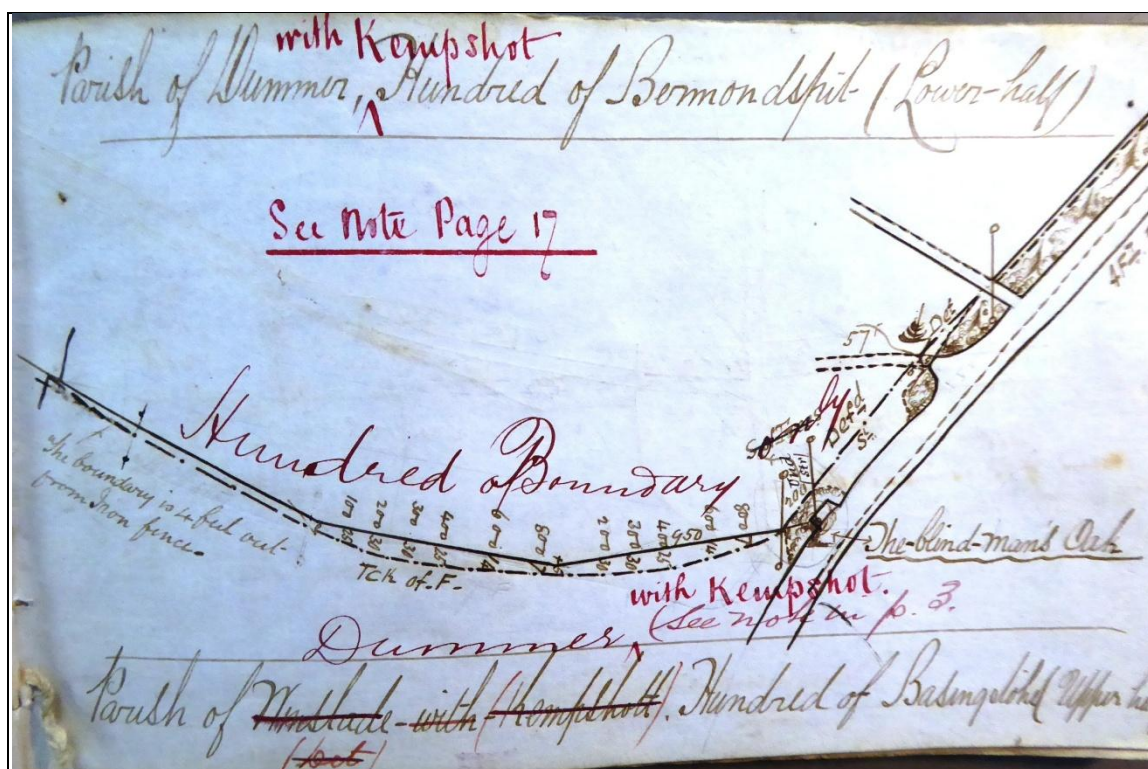 with Kempshot
Parish of Dummer, Hundred of Bermondspit (Lower-half)
See Note Page 17
454
57
Det
Hundred of Boundary
by
Defd
The boundary is 4 feet out
from Iron fence
100 200 300 400 600 800
200 300 400 950 600 800
Tck of. F.
The-blind-man's Oak
with Kempshot.
(See note in p. 3.
Dummer
Parish of Winslade-with-(Kempshott). Hundred of Basingstoke (Upper
(Det)